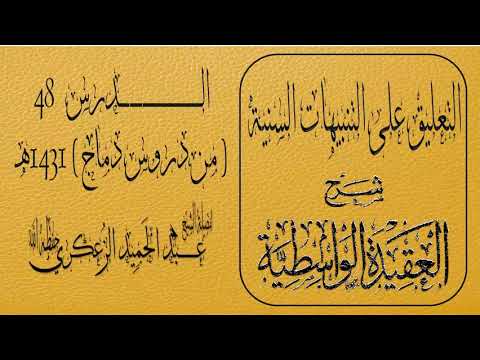 التعليق على التنبيهات السنية
شرح
العقيدة الواسطية
الــدرس 48
( من دروس دماج ) 1431هـ
لفضيلة الشيخ
عبد الحميد الزعكري حفظه الله